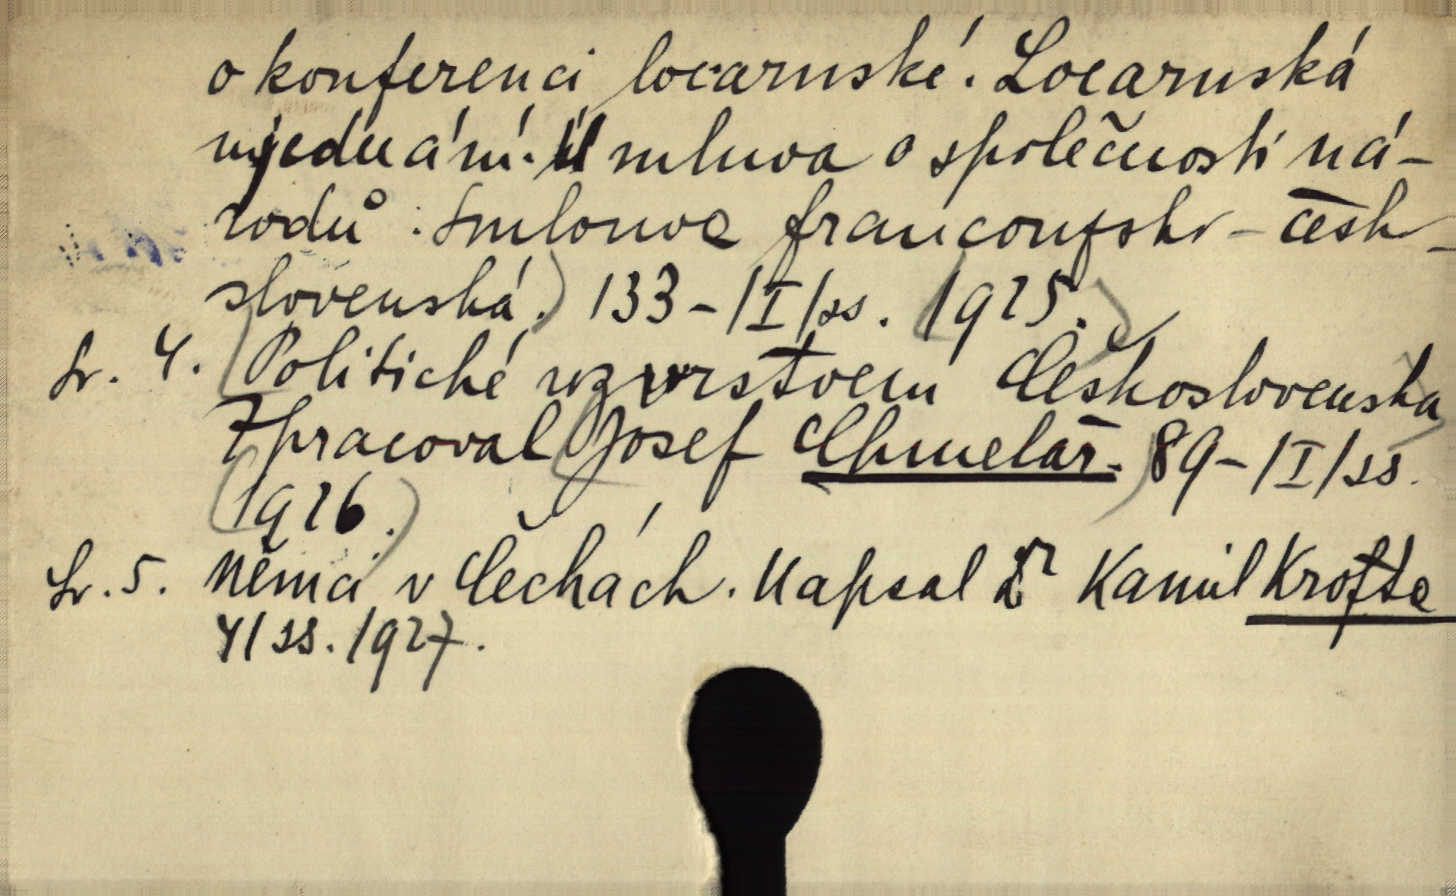 o konferenci locarnské. Locarnská
ujednání. Úmluva o společnosti ná-
rodů. Smlouva francouzsko-česko-
slovenská.) 133-/I/ss. (1925.)
Sv. 4. (Politické rozvrstvení Československa)
Zpracoval (Josef Chmelař.) 89-/I/ss.
(1926.)
Sv. 5. Němci v Čechách. Napsal Dr Kamil Krofta
41 ss. 1927.